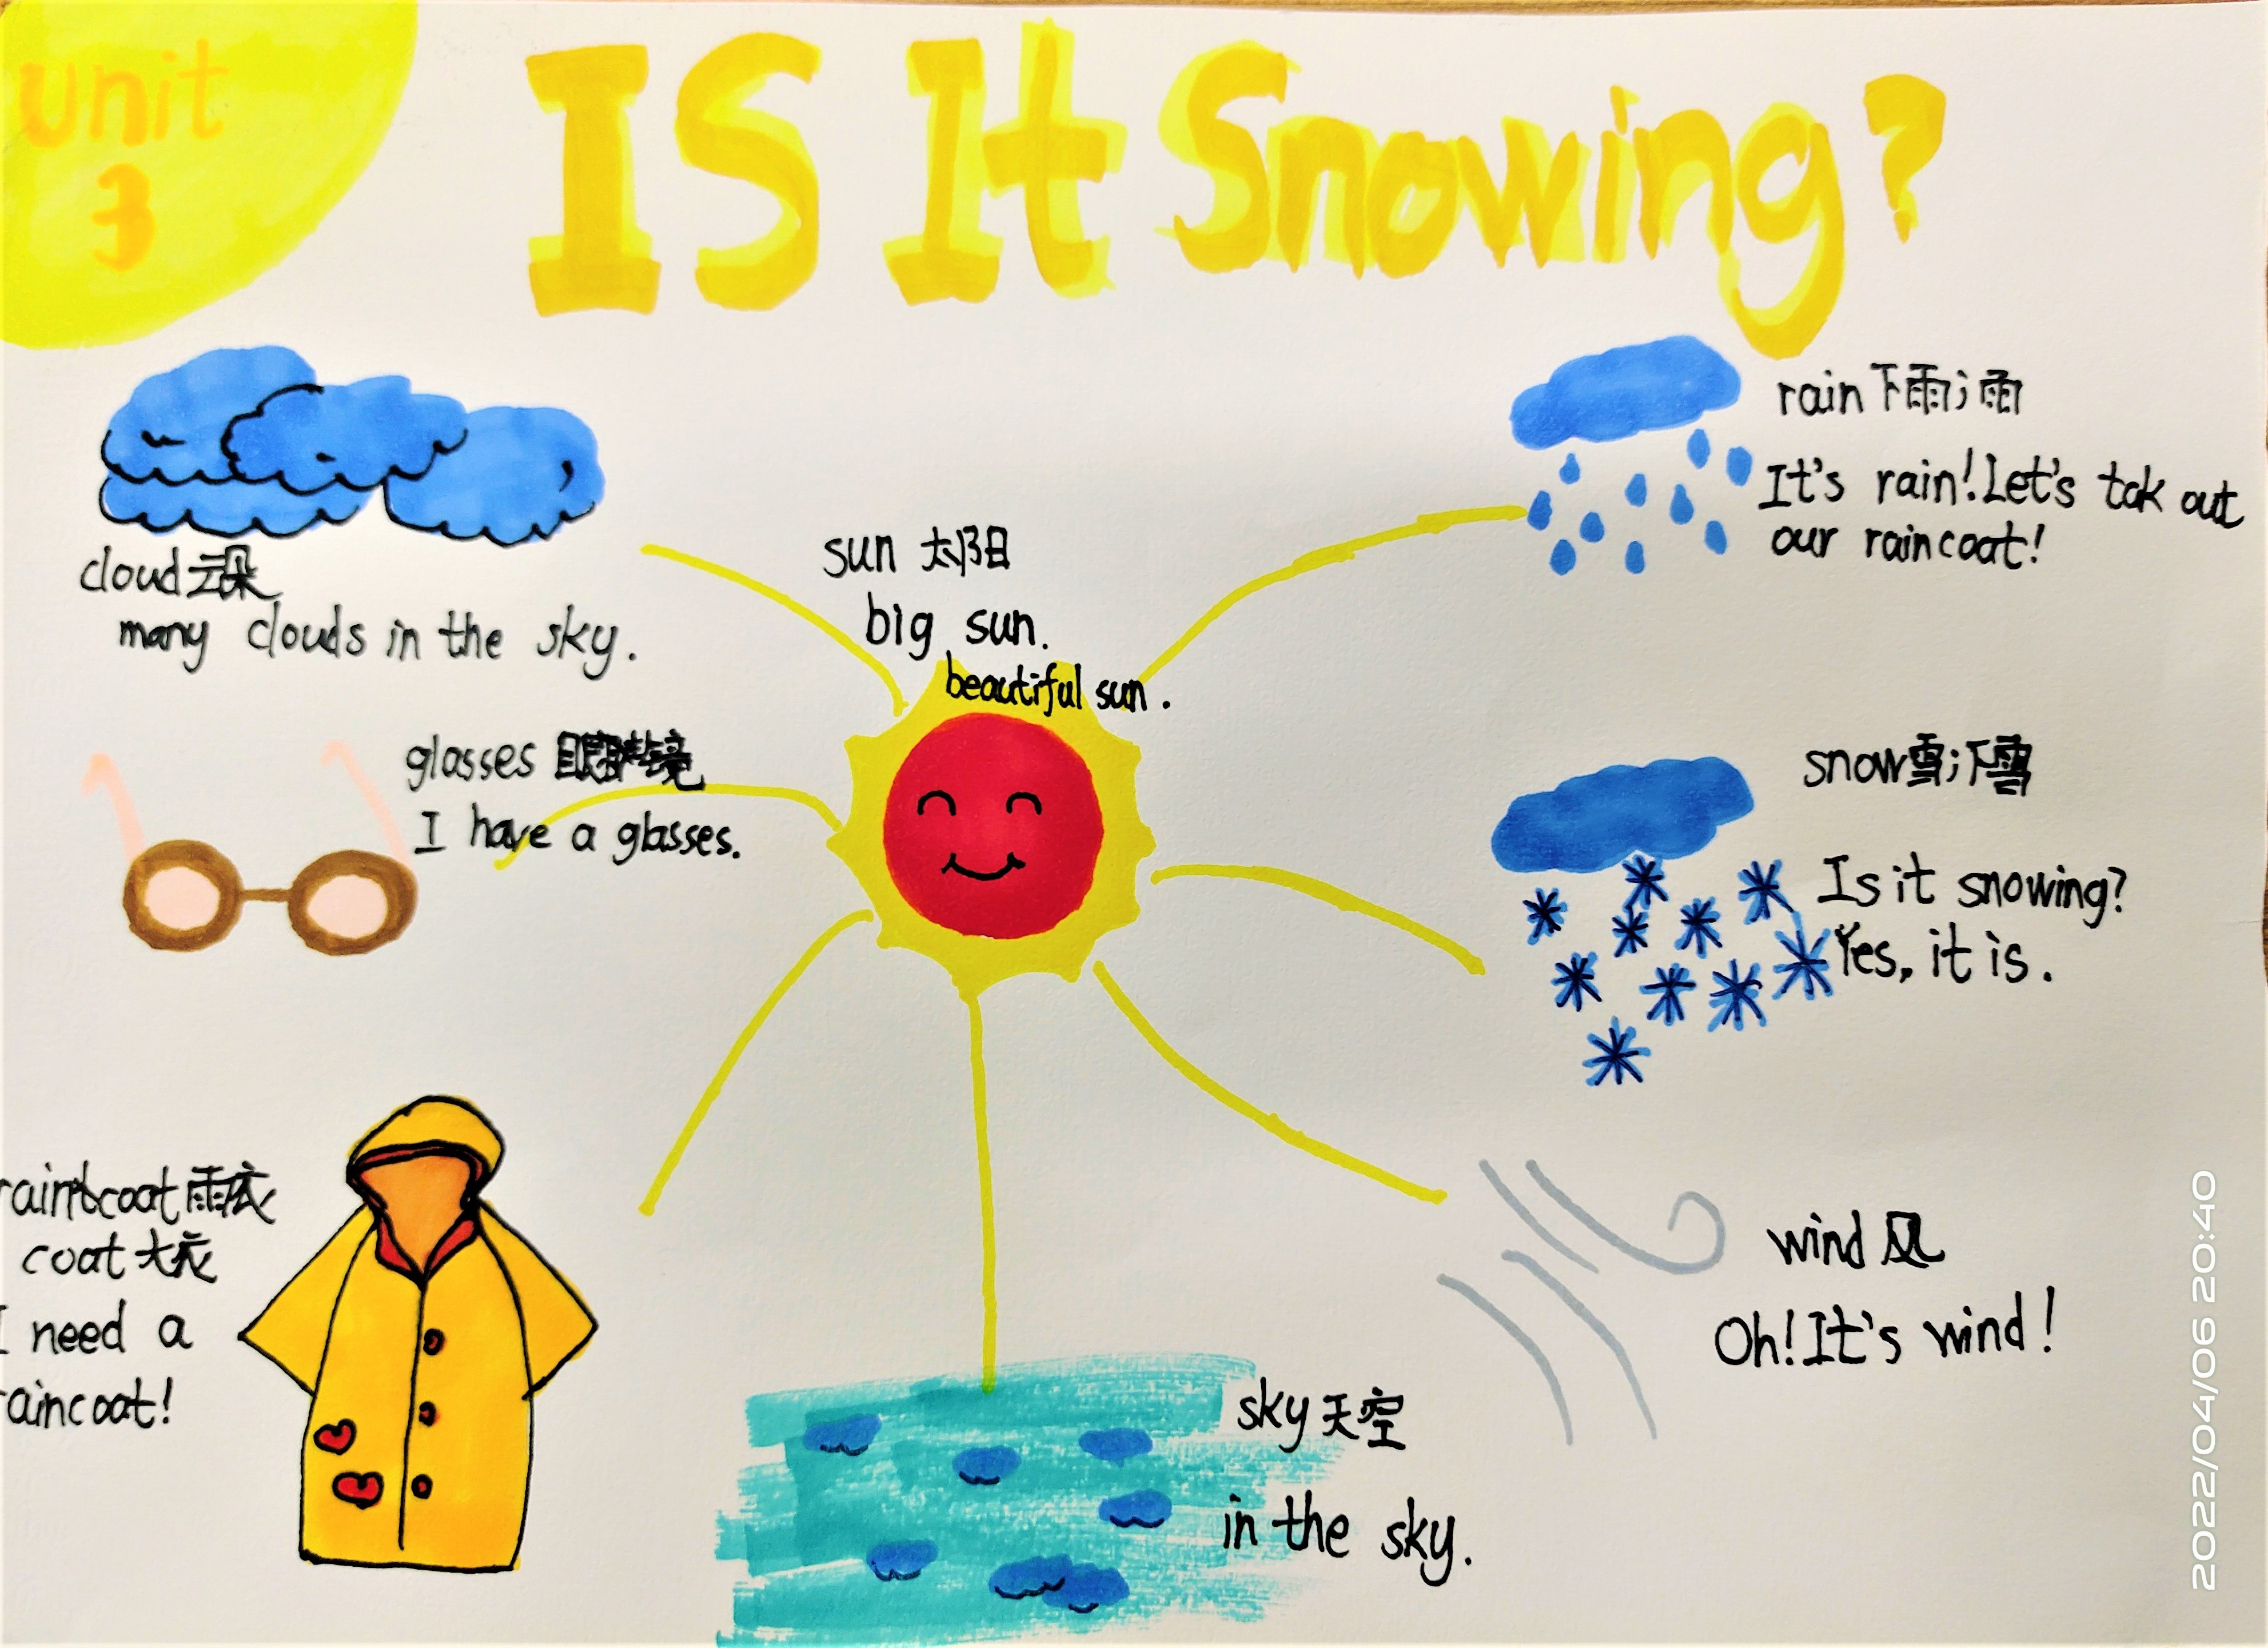 unit
3
IS It Snowing?
cloud 云朵
many clouds in the sky.
sun 太阳
big sun.
beautiful sun.
rain 下雨；雨
It's rain! Let's tak out
our raincoat!
glasses 眼镜
I have a glasses.
snow 雪；下雪
Is it snowing?
Yes, it is.
raincoat 雨衣
coat 大衣
I need a
raincoat!
sky 天空
in the sky.
wind 风
Oh! It's wind!
2022/04/06 20:40